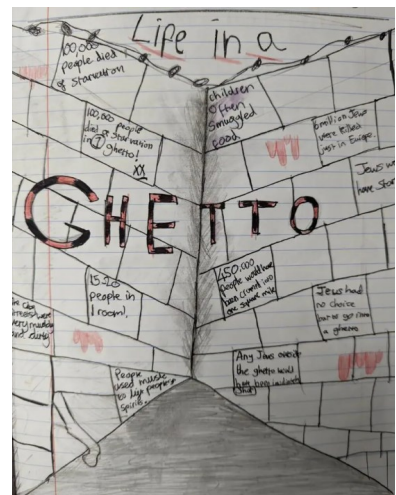 Life in a
GHETTO
100,000
people died
of starvation
100,000 people
died of starvation
in 1 ghetto!
XX
children
often
smuggled
food
6 million Jews
were killed
just in Europe.
Jews w
have star
15-20
people in
1 room!
450,000
people would have
been crammed into
one square mile
Jews had
no choice
but to go into
a ghetto
streets were
very muddy
and dirty
People
used music
to lift people's
spirits.
Any Jews outside
the ghetto would
have been
shot